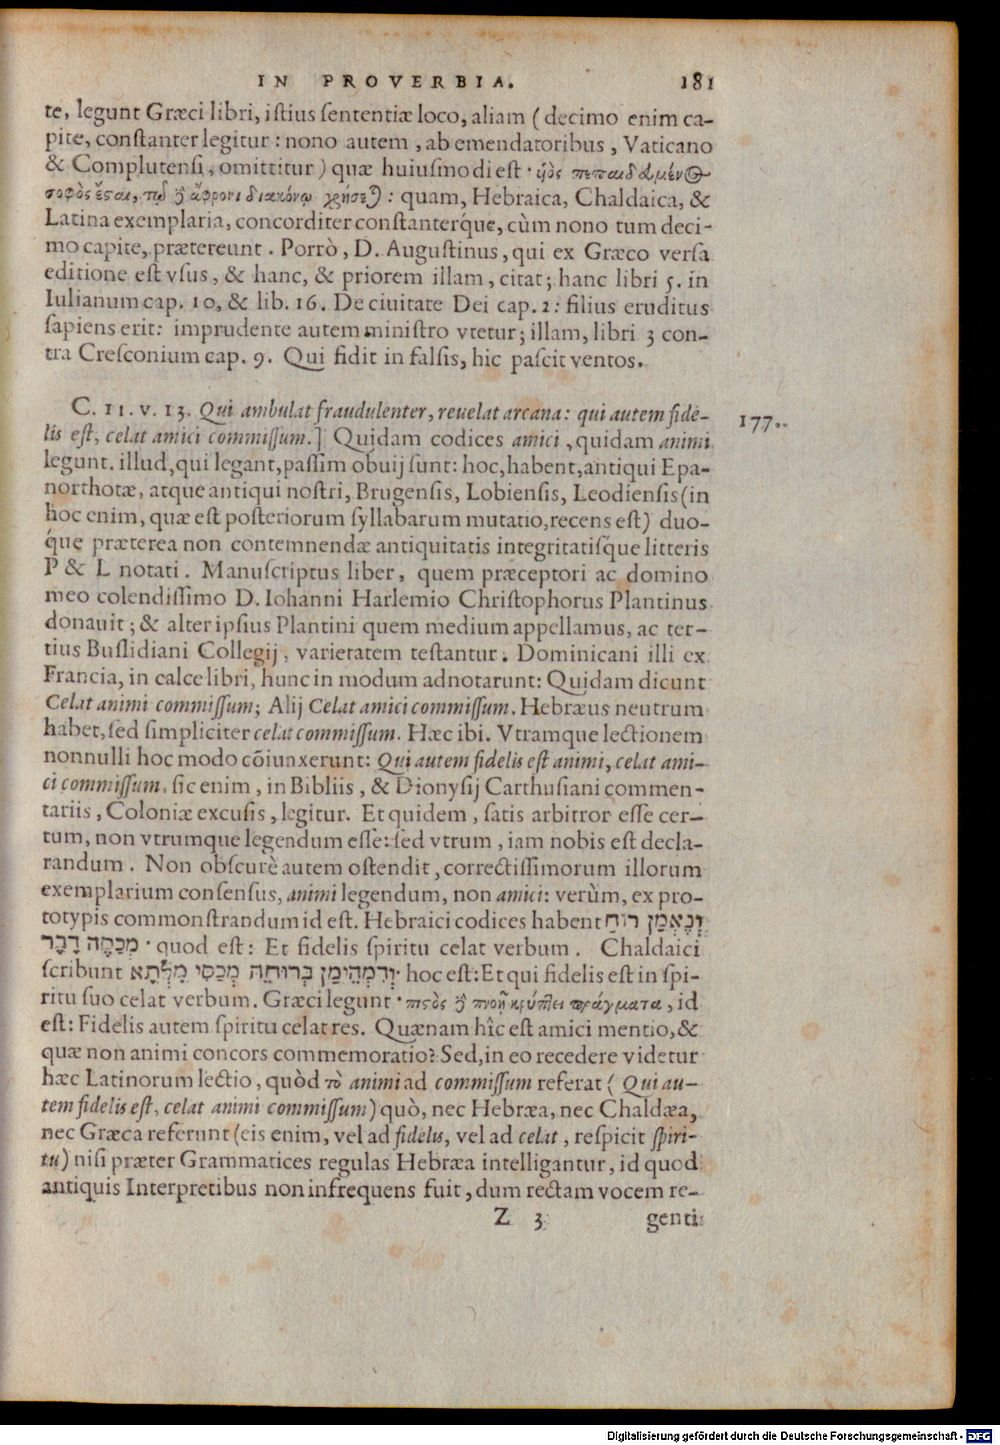 IN PROVERBIA. 181
te, legunt Græci libri, istius sententiæ loco, aliam (decimo enim ca-
pite, constanter legitur: nono autem, ab emendatoribus, Vaticano
& Complutensi, omittitur) quæ huiusmodi est · ὑιὸς πεπαιδευμένος
σοφὸς ἔσται, τῷ δὲ ἄφρονι διακόνῳ χρήσεται: quam, Hebraica, Chaldaica, &
Latina exemplaria, concorditer constanterq́ue, cùm nono tum deci-
mo capite, prætereunt. Porrò, D. Augustinus, qui ex Græco versa
editione est vsus, & hanc, & priorem illam, citat; hanc libri 5. in
Iulianum cap. 10, & lib. 16. De ciuitate Dei cap. 2: filius eruditus
sapiens erit: imprudente autem ministro vtetur; illam, libri 3 con-
tra Cresconium cap. 9. Qui fidit in falsis, hic pascit ventos.
C. 11. v. 13. Qui ambulat fraudulenter, reuelat arcana: qui autem fide-
lis est, celat amici commissum.] Quidam codices amici, quidam animi
legunt. illud, qui legant, passim obuij sunt: hoc, habent, antiqui Epa-
northotæ, atque antiqui nostri, Brugensis, Lobiensis, Leodiensis (in
hoc enim, quæ est posteriorum syllabarum mutatio, recens est) duo-
q́ue præterea non contemnendæ antiquitatis integritatisq́ue litteris
P & L notati. Manuscriptus liber, quem præceptori ac domino
meo colendissimo D. Iohanni Harlemio Christophorus Plantinus
donauit; & alter ipsius Plantini quem medium appellamus, ac ter-
tius Buslidiani Collegij, varietatem testantur. Dominicani illi ex
Francia, in calce libri, hunc in modum adnotarunt: Quidam dicunt
Celat animi commissum; Alij Celat amici commissum. Hebræus neutrum
habet, sed simpliciter celat commissum. Hæc ibi. Vtramque lectionem
nonnulli hoc modo cõiunxerunt: Qui autem fidelis est animi, celat ami-
ci commissum. sic enim, in Bibliis, & Dionysij Carthusiani commen-
tariis, Coloniæ excusis, legitur. Et quidem, satis arbitror esse cer-
tum, non vtrumque legendum esse: sed vtrum, iam nobis est decla-
randum. Non obscurè autem ostendit, correctissimorum illorum
exemplarium consensus, animi legendum, non amici: verùm, ex pro-
totypis commonstrandum id est. Hebraici codices habent וְנֶאֱמַן רוּחַ
מְכַסֶּה דָבָר · quod est: Et fidelis spiritu celat verbum. Chaldaici
scribunt וְדִמְהֵימַן בְּרוּחֵהּ מְכַסֵּי מִלְּתָא · hoc est: Et qui fidelis est in spi-
ritu suo celat verbum. Græci legunt · πιστὸς δὲ πνοῇ κρύπτει πράγματα, id
est: Fidelis autem spiritu celat res. Quænam hîc est amici mentio, &
quæ non animi concors commemoratio? Sed, in eo recedere videtur
hæc Latinorum lectio, quòd τὸ animi ad commissum referat (Qui au-
tem fidelis est, celat animi commissum) quò, nec Hebræa, nec Chaldæa,
nec Græca referunt (eis enim, vel ad fidelis, vel ad celat, respicit spiri-
tu) nisi præter Grammatices regulas Hebræa intelligantur, id quod
antiquis Interpretibus non infrequens fuit, dum rectam vocem re-
Z 3 genti
177.
Digitalisierung gefördert durch die Deutsche Forschungsgemeinschaft - DFG